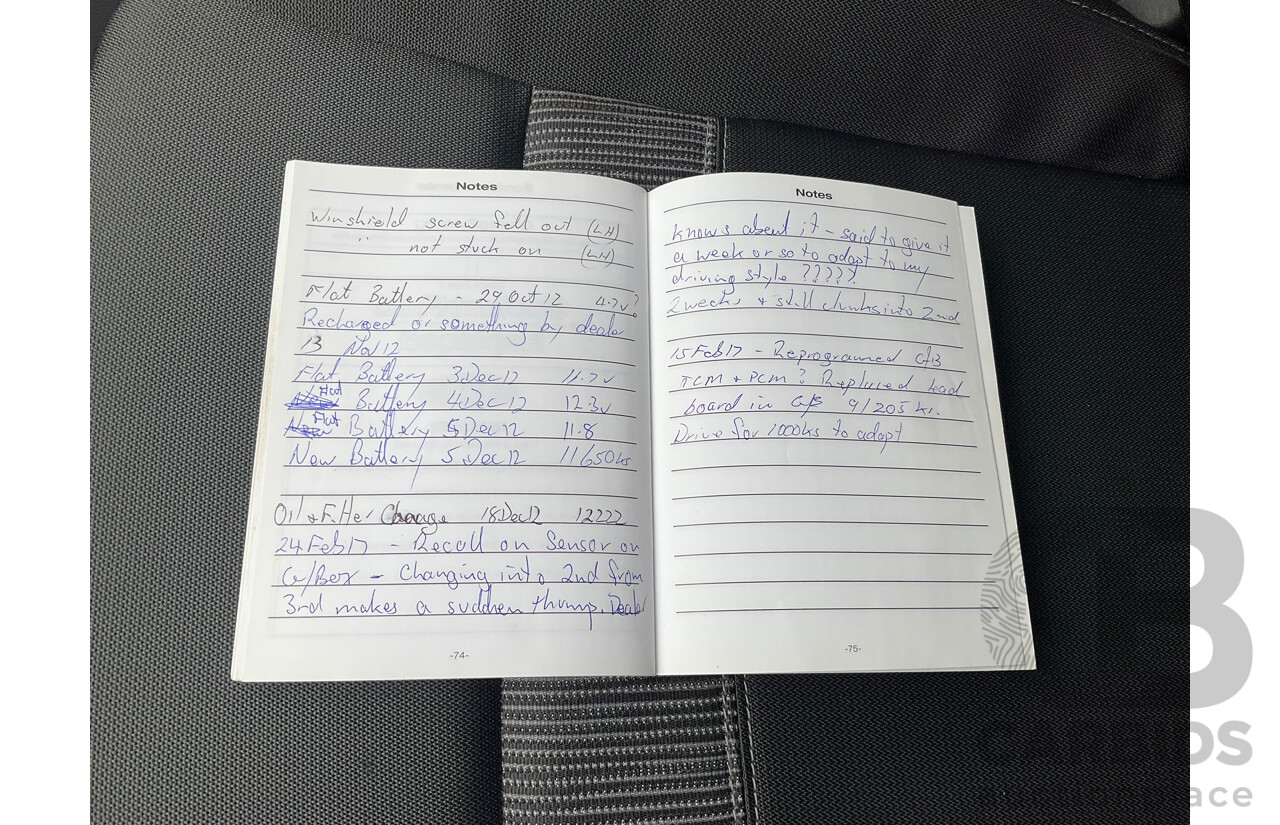 Notes
Winshield screw fell out (LH)
" not stuck on (LH)
Flat Battery - 29 Oct 12 4.7v?
Recharged or something by dealer
13 Nov 12
Flat Battery 3 Dec 12 11.7v
Flat Battery 4 Dec 12 12.3v
Flat Battery 5 Dec 12 11.8
New Battery 5 Dec 12 11650ks
Oil & Filter Change 18 Dec 12 12222
24 Feb 17 - Recall on Sensor on
G/Box - Changing into 2nd from
3rd makes a sudden thump. Dealer
-74-
Notes
knows about it - said to give it
a week or so to adapt to my
driving style ?????
2 weeks & still clunks into 2nd
15 Feb 17 - Reprogramed
TCM + PCM? Replaced lead
board in G/B 91205 ks.
Drive for 1000ks to adapt
-75-
B
ace